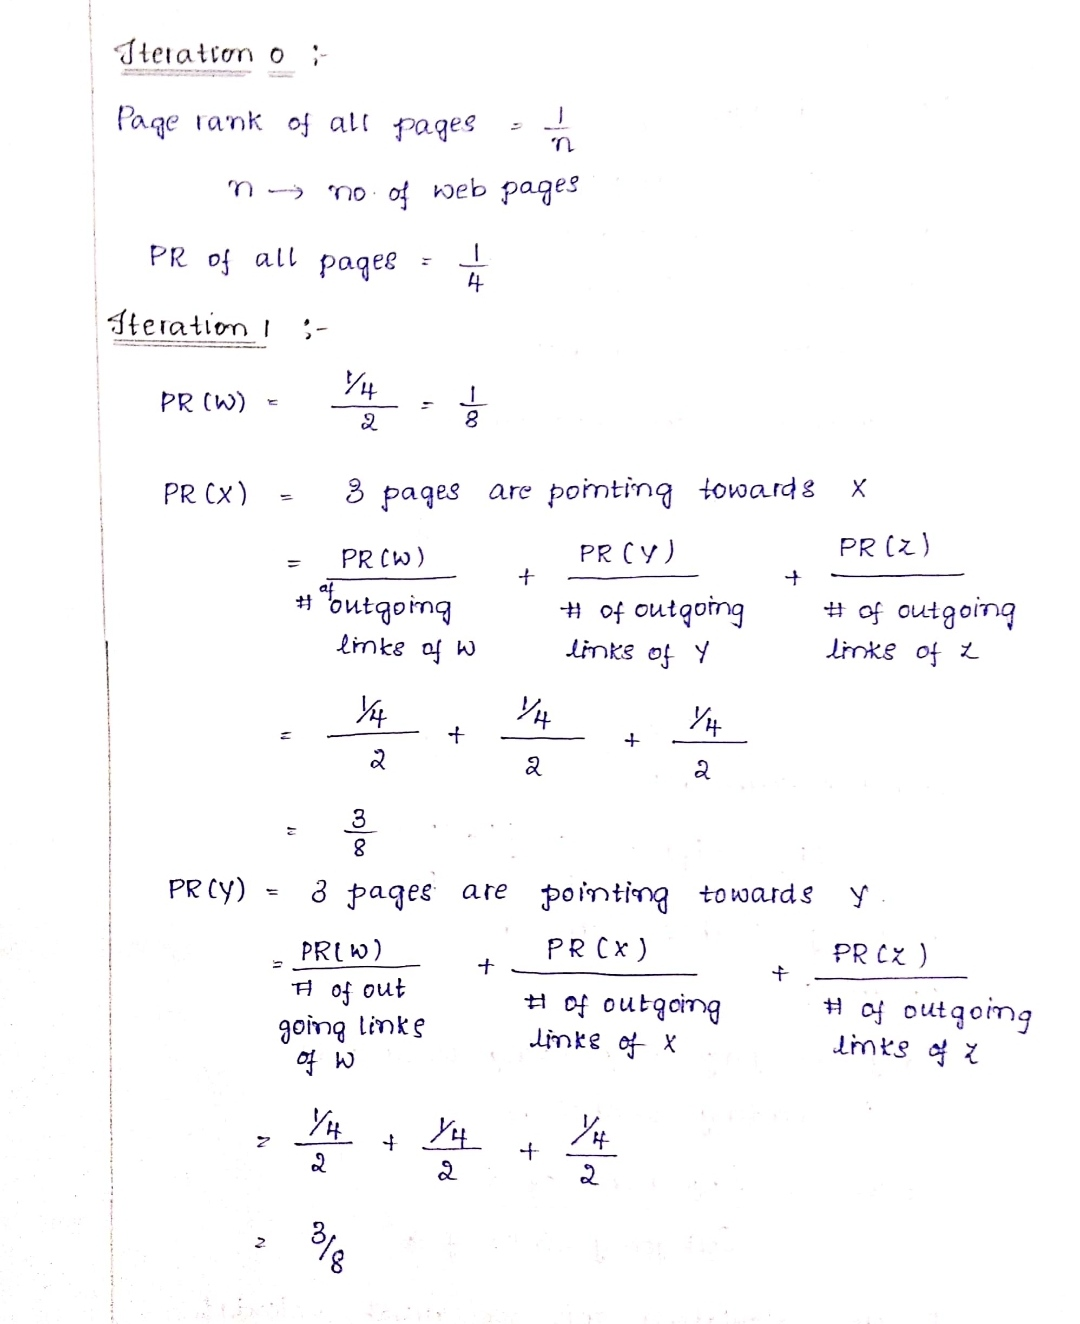 Iteration 0 :-
Page rank of all pages = 1/n
n → no. of web pages
PR of all pages = 1/4
Iteration 1 :-
PR (W) = (1/4)/2 = 1/8
PR (X) = 3 pages are pointing towards X
= PR (W)/# of outgoing links of W + PR (Y)/# of outgoing links of Y + PR (Z)/# of outgoing links of Z
= (1/4)/2 + (1/4)/2 + (1/4)/2
= 3/8
PR (Y) = 3 pages are pointing towards Y.
= PR (W)/# of out going links of W + PR (X)/# of outgoing links of X + PR (Z)/# of outgoing links of Z
= (1/4)/2 + (1/4)/2 + (1/4)/2
= 3/8